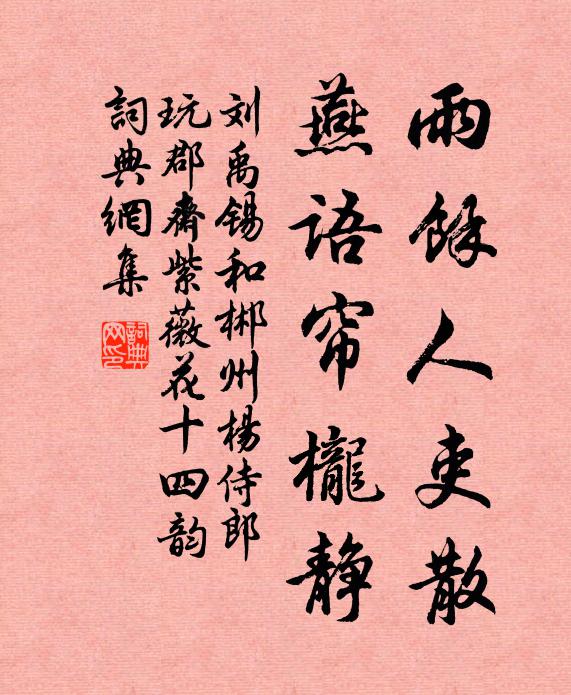 雨餘人吏散
燕语帘櫳静
刘禹锡和郴州楊侍郎
玩郡齋紫薇花十四韵
詞典網集
詞典网印